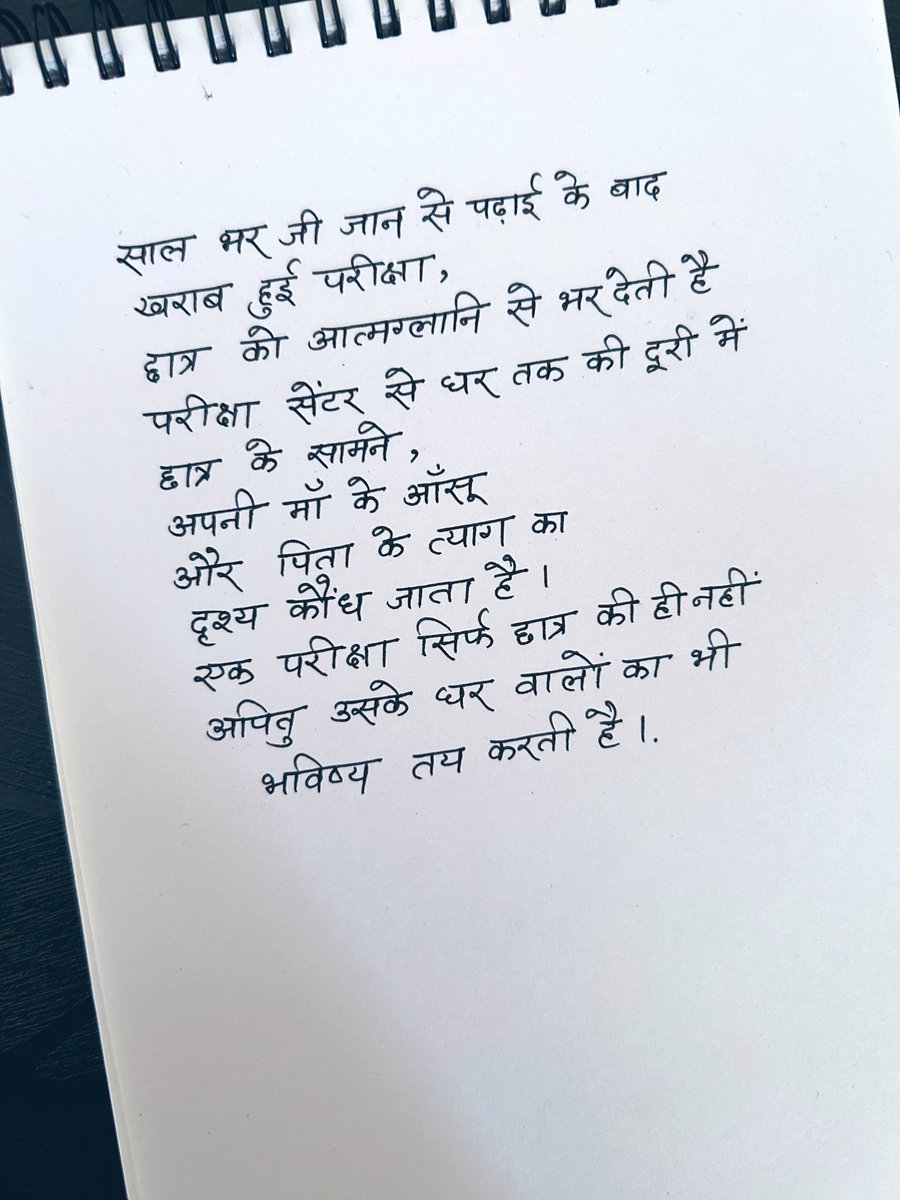 साल भर जी जान से पढ़ाई के बाद
खराब हुई परीक्षा,
छात्र को आत्मग्लानि से भर देती है
परीक्षा सेंटर से घर तक की दूरी में
छात्र के सामने,
अपनी माँ के आँसू
और पिता के त्याग का
दृश्य कौंध जाता है।
एक परीक्षा सिर्फ छात्र की ही नहीं
अपितु उसके घर वालों का भी
भविष्य तय करती है।.